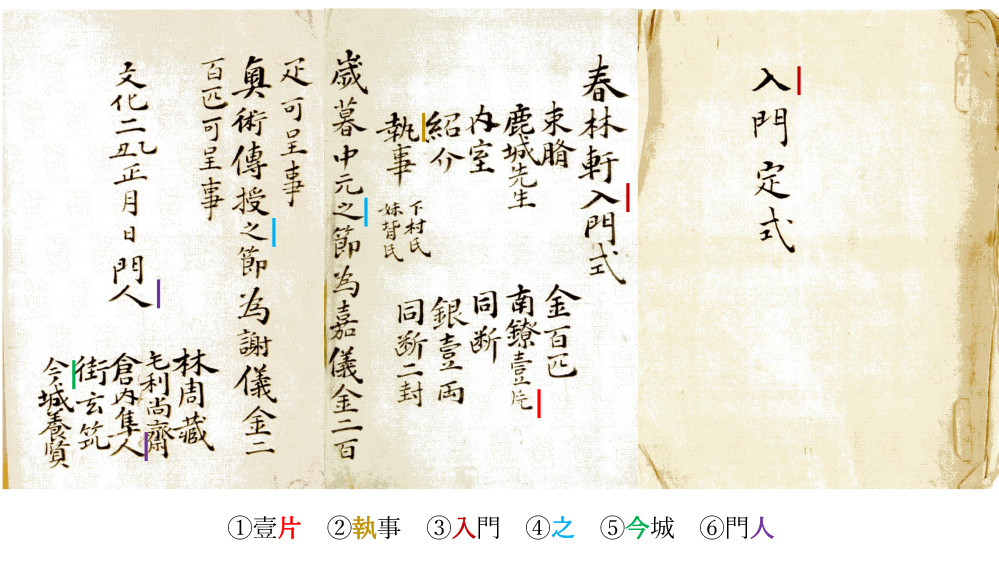 入門定式
春林軒入門式
束脩 金百匹
鹿城先生 南鐐壹片
内室 同断
紹介 銀壹両
執事 下村氏 妹背氏 同断二封
歳暮中元之節為嘉儀金二百
疋可呈事
奥術傳授之節為謝儀金二
百匹可呈事
文化二乙丑正月日 門人
林周蔵
毛利尚齋
倉内隼人
街玄筑
今城養賢
①壹片 ②執事 ③入門 ④之 ⑤今城 ⑥門人